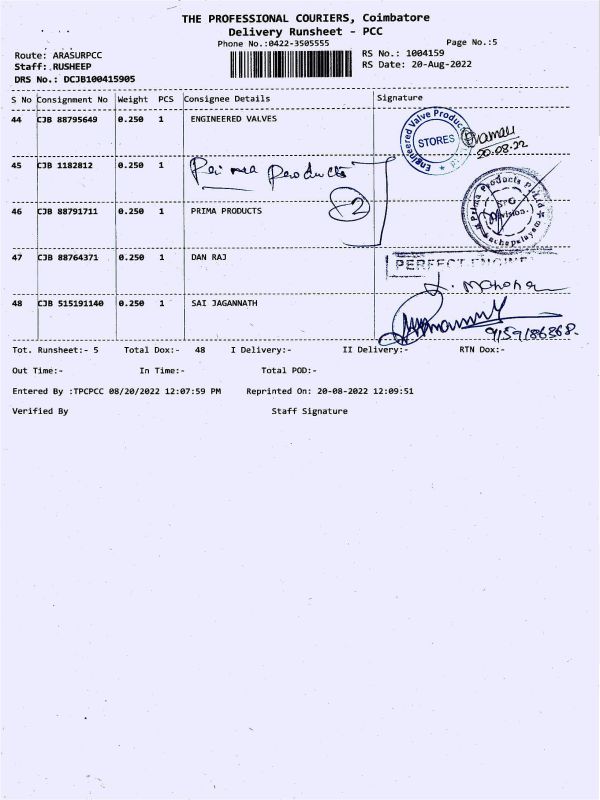 THE PROFESSIONAL COURIERS, Coimbatore
Delivery Runsheet - PCC
Phone No.:0422-3505555
Page No.:5
Route: ARASURPCC
RS No.: 1004159
Staff: RUSHEEP
RS Date: 20-Aug-2022
DRS No.: DCJB100415905
S No Consignment No Weight PCS Consignee Details Signature
44 CJB 88795649 0.250 1 ENGINEERED VALVES
Engineered Valve Produc
STORES
20.08.22
45 CJB 1182812 0.250 1 Prima Products
2
46 CJB 88791711 0.250 1 PRIMA PRODUCTS
Prima Products P Ltd
SPG
Division.
47 CJB 88764371 0.250 1 DAN RAJ
PERFECT ENGINE
48 CJB 515191140 0.250 1 SAI JAGANNATH
9159186868.
Tot. Runsheet:- 5 Total Dox:- 48 I Delivery:- II Delivery:- RTN Dox:-
Out Time:- In Time:- Total POD:-
Entered By :TPCPCC 08/20/2022 12:07:59 PM Reprinted On: 20-08-2022 12:09:51
Verified By Staff Signature